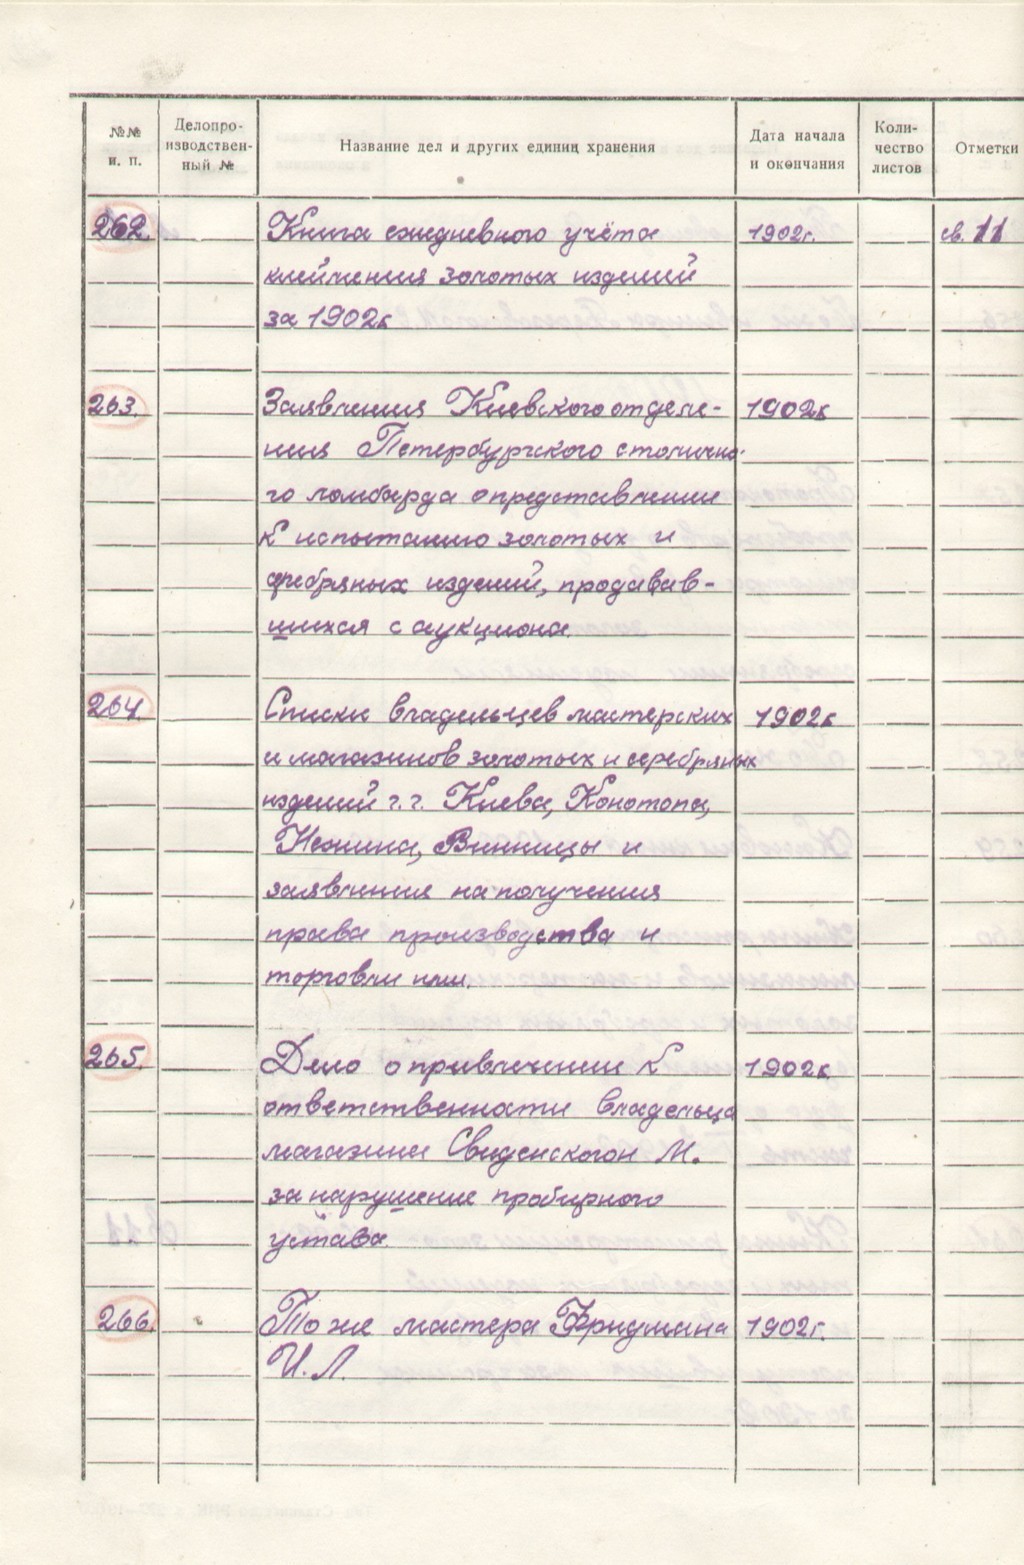 №№ и. п. Делопроизводственный № Название дел и других единиц хранения Дата начала и окончания Количество листов Отметки
262. Книга ежедневного учёта 1902г. св. 11
клеймения золотых изделий
за 1902г.
263. Заявления Киевского отделе- 1902г.
ния Петербургского столично-
го ломбарда о представлении
к испытанию золотых и
серебряных изделий, продавав-
шихся с аукциона.
264. Списки владельцев мастерских 1902г.
и магазинов золотых и серебряных
изделий г.г. Киева, Конотопа,
Нежина, Винницы и
заявления на получения
права производства и
торговли ими.
265. Дело о привлечении к 1902г.
ответственности владельца
магазина М.
за нарушение пробирного
устава
266. То же мастера Фридмана 1902г.
И.Л.